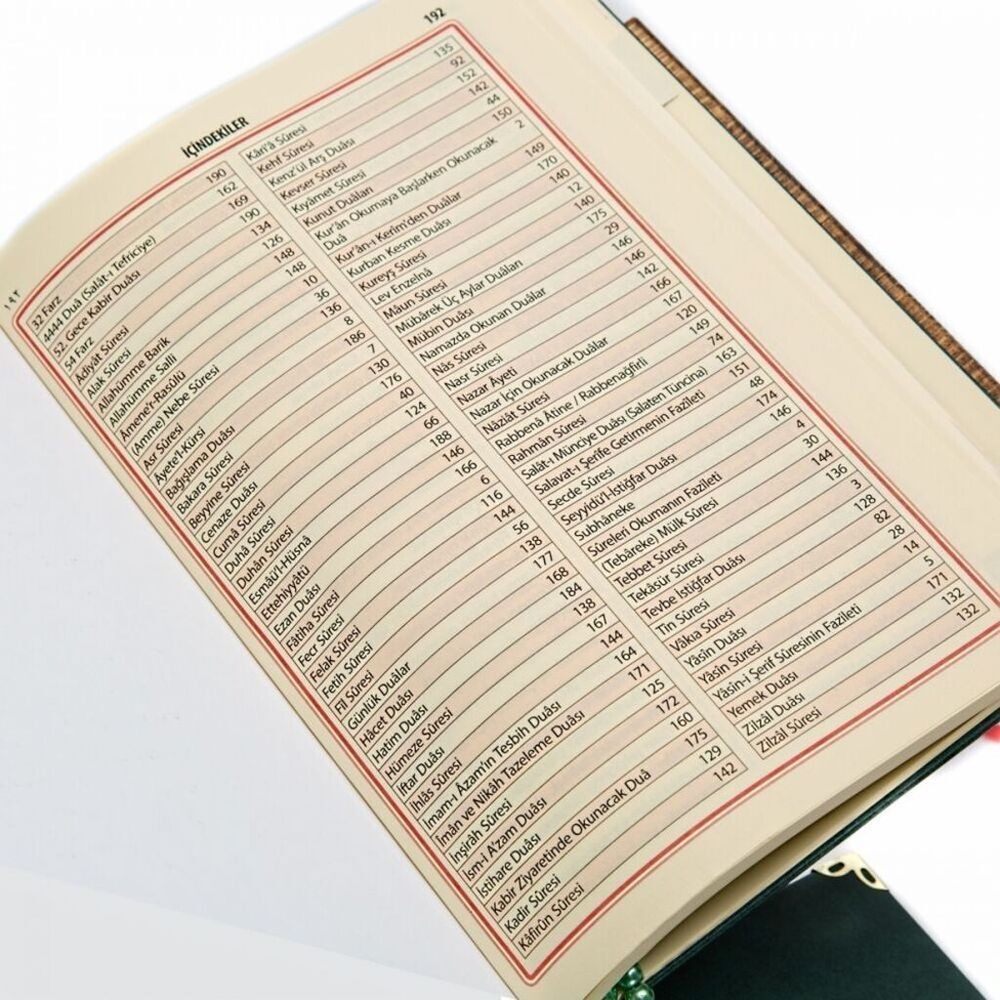 192
١٩٢
İÇİNDEKİLER
32 Farz 190
4444 Duâ (Salât-ı Tefriciye) 162
52. Gece Kabir Duâsı 169
54 Farz 190
Âdiyât Sûresi 134
Alak Sûresi 126
Allahümme Barik 148
Allahümme Salli 148
Âmene'r-Rasûlü 10
(Amme) Nebe Sûresi 36
Asr Sûresi 136
Âyete'l-Kürsi 8
Bağışlama Duâsı 186
Bakara Sûresi 7
Beyyine Sûresi 130
Cenaze Duâsı 176
Cumâ Sûresi 40
Duhâ Sûresi 124
Duhân Sûresi 66
Esmâü'l-Hüsnâ 188
Ettehiyyatü 146
Ezan Duâsı 166
Fâtiha Sûresi 6
Fecr Sûresi 116
Felak Sûresi 144
Fetih Sûresi 56
Fîl Sûresi 138
Günlük Duâlar 177
Hâcet Duâsı 168
Hatim Duâsı 184
Hümeze Sûresi 138
İftar Duâsı 167
İhlâs Sûresi 144
İmam-ı Âzam'ın Tesbih Duâsı 164
İmân ve Nikâh Tazeleme Duâsı 171
İnşirâh Sûresi 125
İsm-i A'zam Duâsı 172
İstihare Duâsı 160
Kabir Ziyaretinde Okunacak Duâ 175
Kadir Sûresi 129
Kâfirûn Sûresi 142
Kâri'â Sûresi 135
Kehf Sûresi 92
Kenz'ül Arş Duâsı 152
Kevser Sûresi 142
Kıyâmet Sûresi 44
Kunut Duâları 150
Kur'ân Okumaya Başlarken Okunacak 2
Duâ
Kur'ân-ı Kerîm'den Duâlar 149
Kurban Kesme Duâsı 170
Kureyş Sûresi 140
Lev Enzelnâ 12
Mâun Sûresi 140
Mübârek Üç Aylar Duâları 175
Mübîn Duâsı 29
Namazda Okunan Duâlar 146
Nâs Sûresi 146
Nasr Sûresi 142
Nazar Âyeti 166
Nazar İçin Okunacak Duâlar 167
Nâziât Sûresi 120
Rabbenâ Âtine / Rabbenağfirli 149
Rahmân Sûresi 74
Salât-ı Münciye Duâsı (Salaten Tüncina) 163
Salavat-ı Şerife Getirmenin Fazîleti 151
Secde Sûresi 48
Seyyidü'l-İstiğfar Duâsı 174
Subhâneke 146
Sûreleri Okumanın Fazîleti 4
(Tebâreke) Mülk Sûresi 30
Tebbet Sûresi 144
Tekâsür Sûresi 136
Tevbe İstiğfar Duâsı 3
Tin Sûresi 128
Vâkıa Sûresi 82
Yâsîn Duâsı 28
Yâsîn Sûresi 14
Yâsîn-i Şerîf Sûresinin Fazîleti 5
Yemek Duâsı 171
Zilzâl Duâsı 132
Zilzâl Sûresi 132